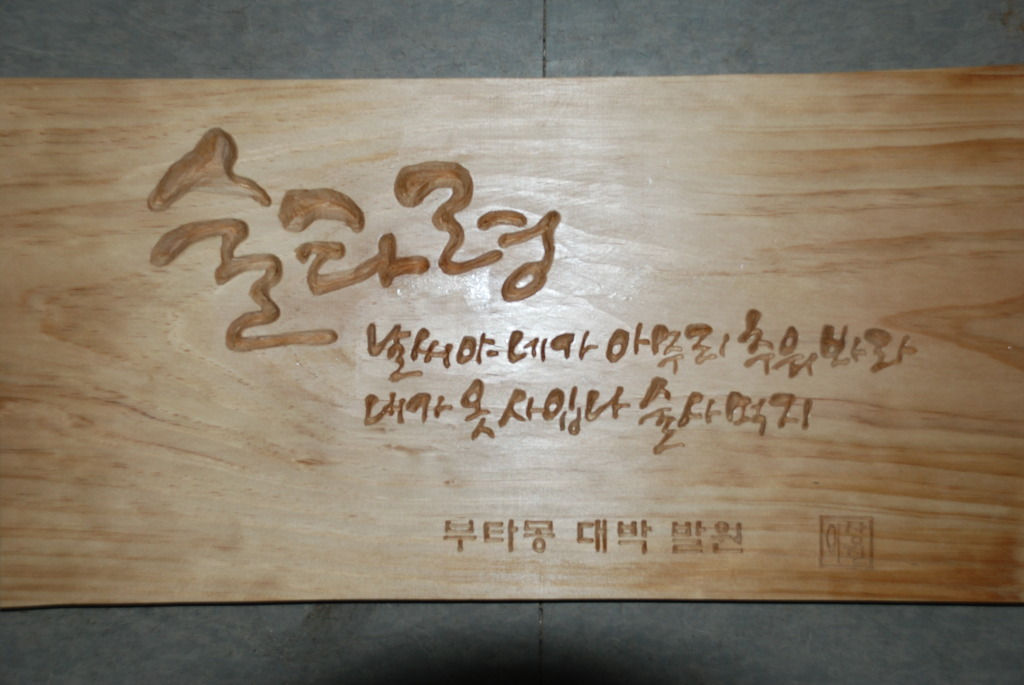 술타령
날씨야 네가 아무리 추워봐라
내가 옷 사입나 술사먹지
부타동 대박 발원